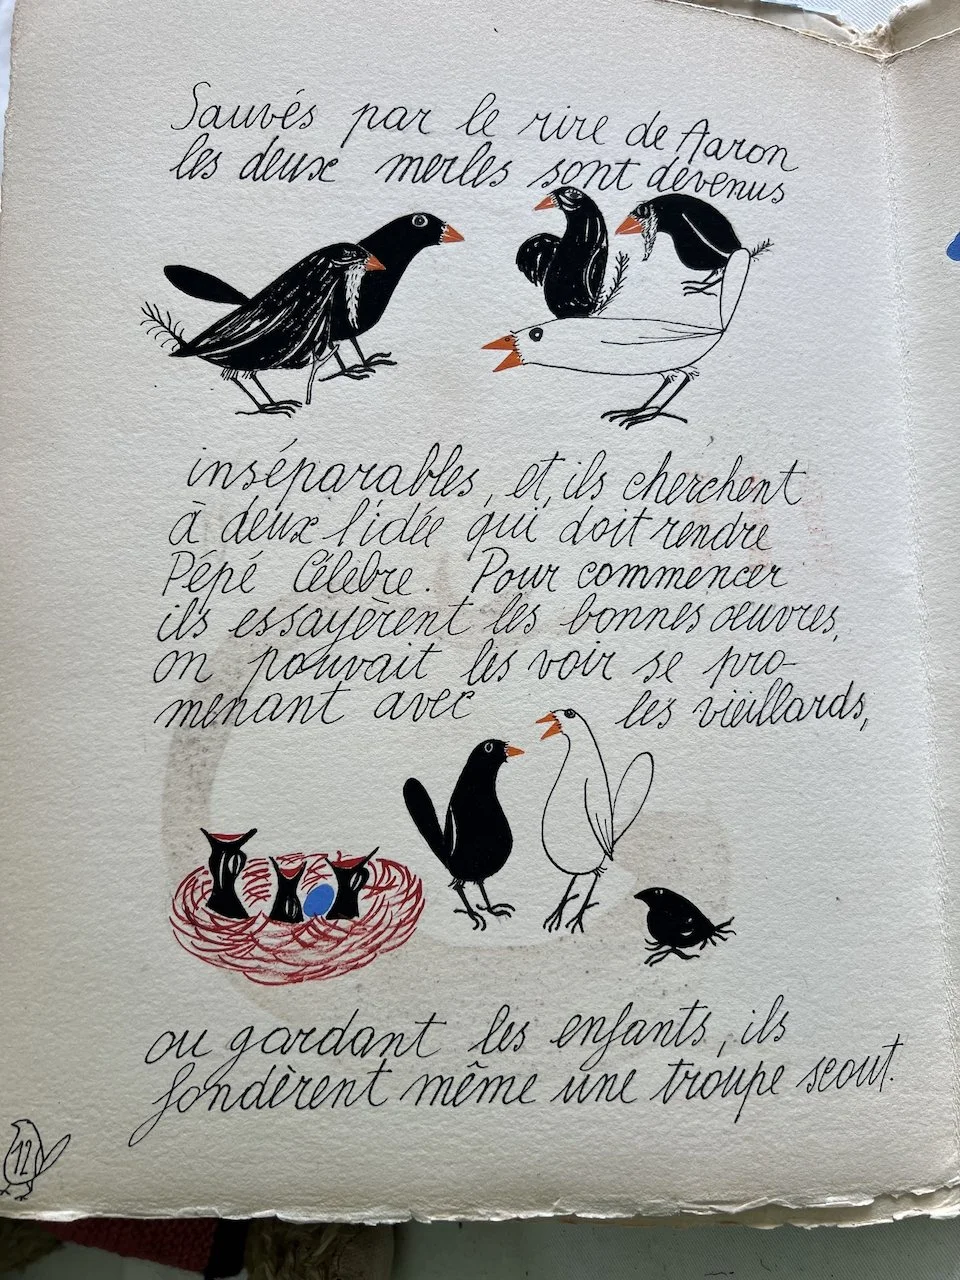 Sauvés par le rire de Aaron
les deux merles sont devenus
inséparables, et, ils cherchent
à deux l'idée qui doit rendre
Pépé Célèbre. Pour commencer
ils essayèrent les bonnes œuvres,
on pouvait les voir se pro-
menant avec les vieillards,
ou gardant les enfants, ils
fondèrent même une troupe scout.
12